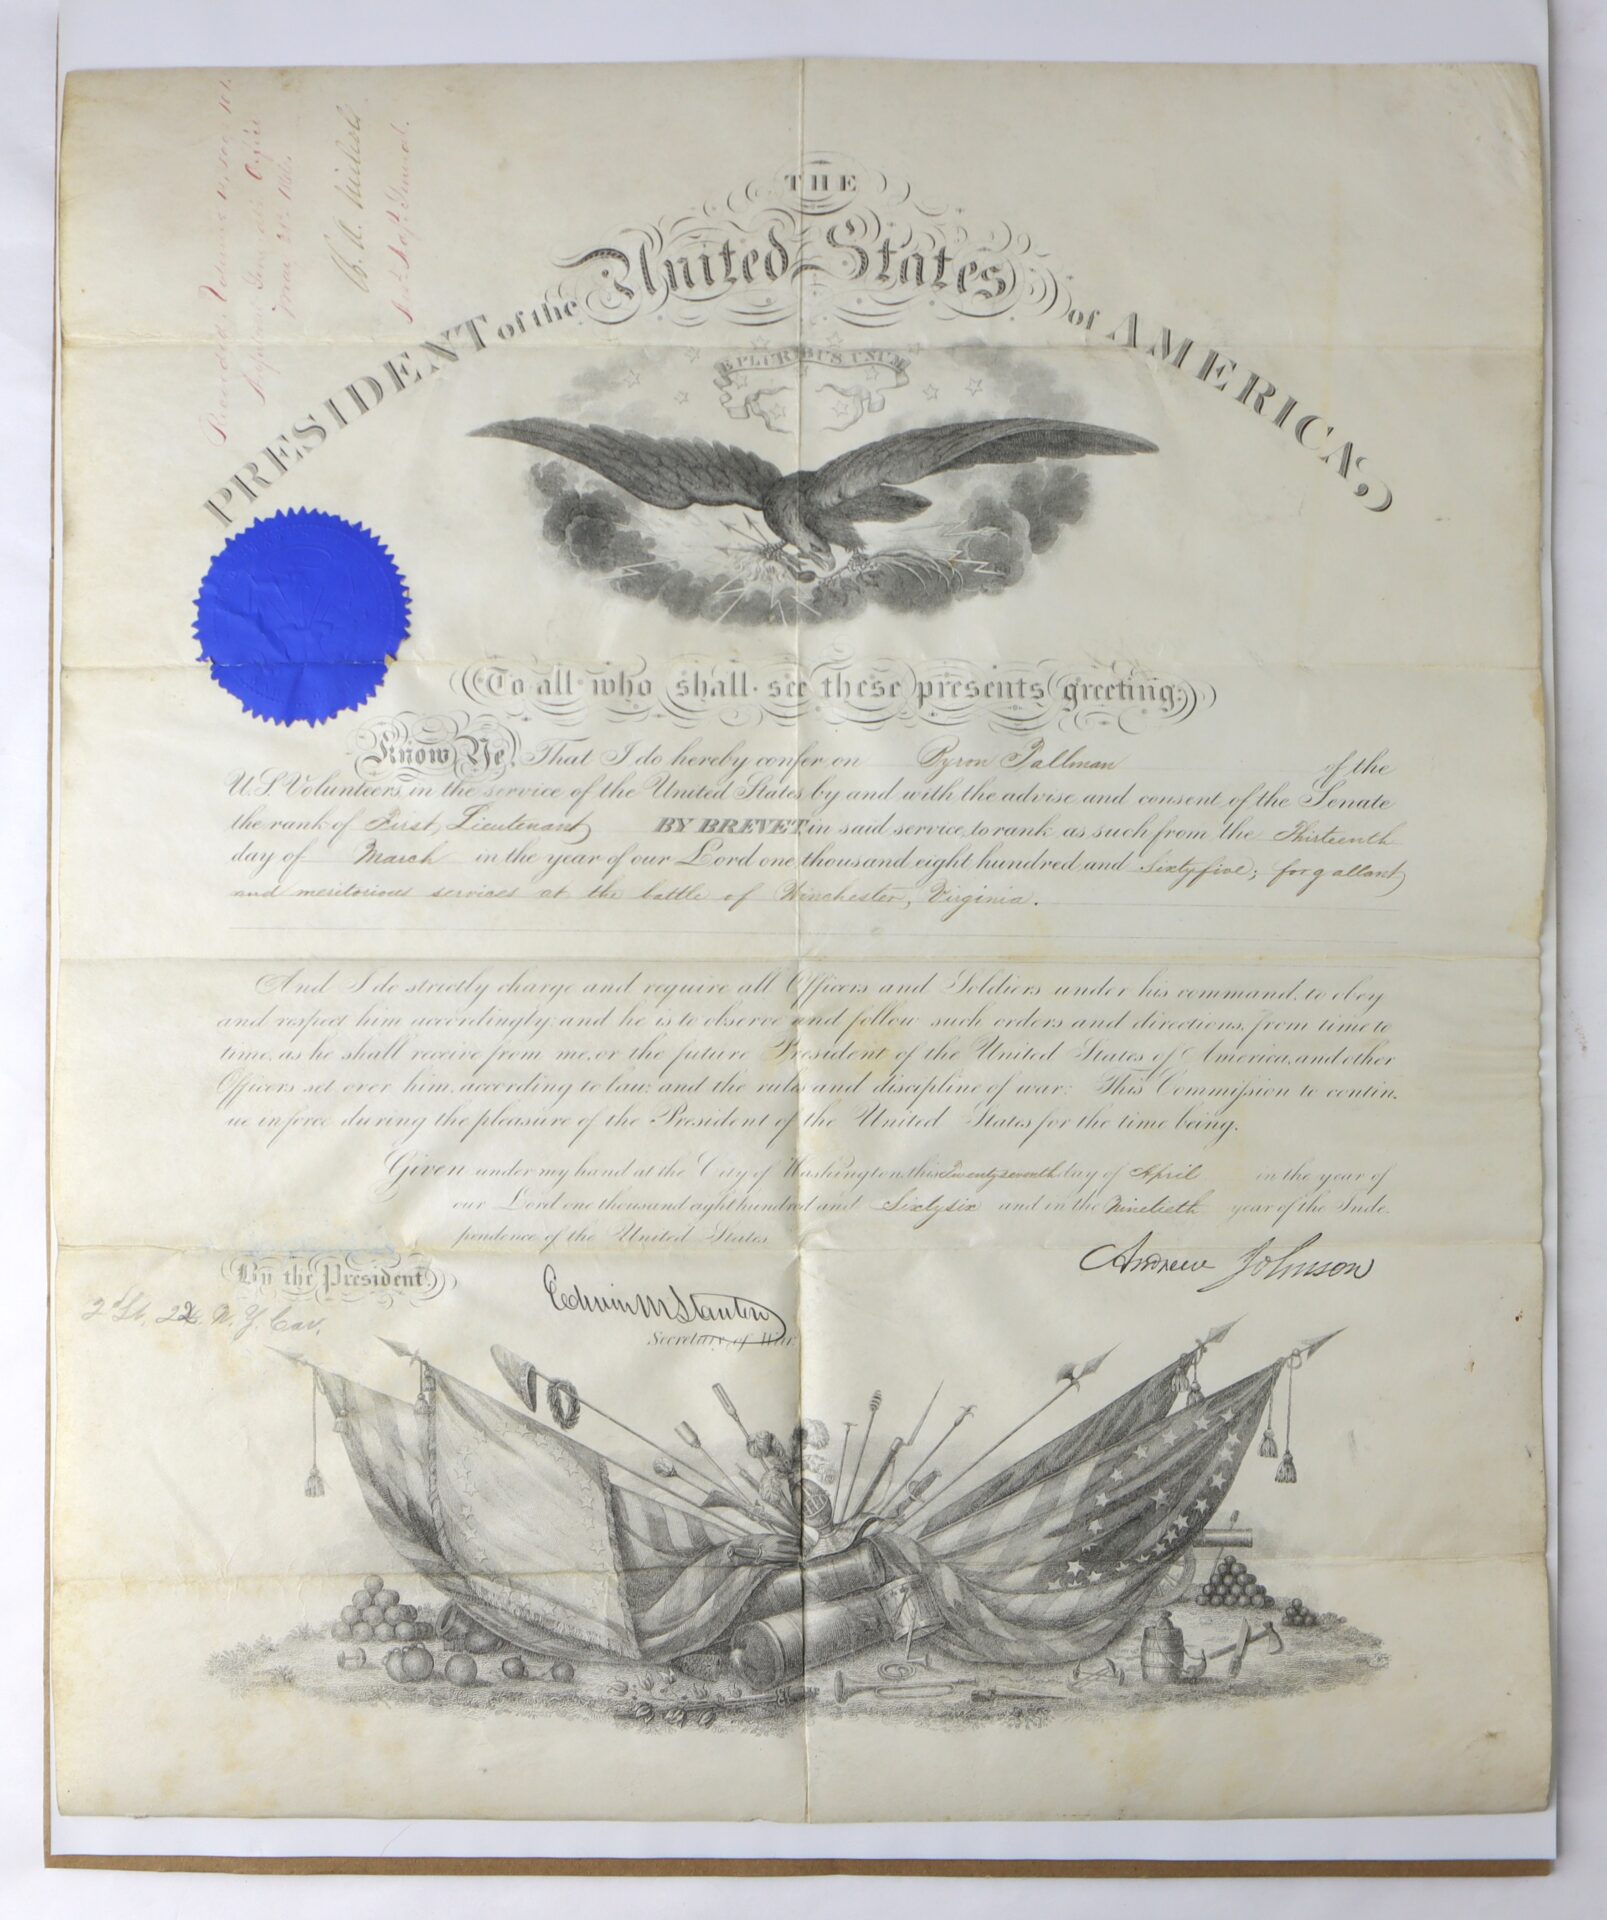 THE
PRESIDENT of the United States of AMERICA,
E PLURIBUS UNUM
To all who shall see these presents greeting:
Know Ye, That I do hereby confer on Byron Tallman of the
U.S. Volunteers, in the service of the United States, by and with the advise and consent of the Senate
the rank of First Lieutenant BY BREVET, in said service, to rank as such from the Thirteenth
day of March in the year of our Lord one thousand eight hundred and Sixtyfive; for gallant
and meritorious services at the battle of Winchester, Virginia.
And I do strictly charge and require all Officers and Soldiers under his command, to obey
and respect him accordingly: and he is to observe and follow such orders and directions, from time to
time, as he shall receive from me, or the future President of the United States of America, and other
Officers set over him, according to law: and the rules and discipline of war: This Commission to contin.
ue in force during the pleasure of the President of the United States for the time being.
Given under my hand at the City of Washington, this Twenty seventh day of April in the year of
our Lord one thousand eight hundred and Sixtysix and in the Ninetieth year of the Inde.
pendence of the United States.
Andrew Johnson
By the President,
Edwin M Stanton
Secretary of War
2d Lt. 22 N. Y. Cav.
Recorded, Volume
Adjutant General's Office
Asst. Adjt. General.